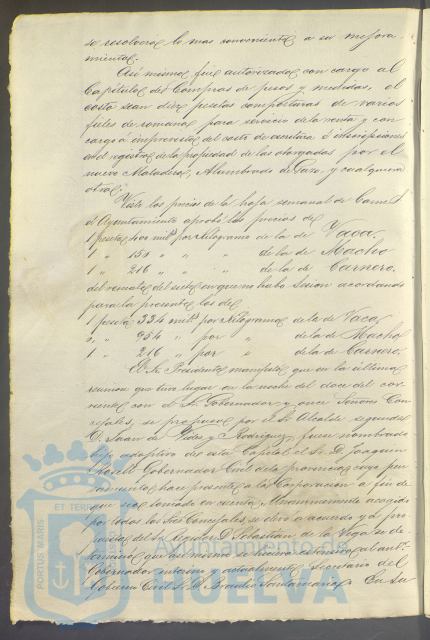 se resolverá lo mas conveniente a su mejora-
miento.
Asi mismo fué autorizado con cargo al
Capítulo de Compras de pesos y medidas, el
costo de composturas de varios
fieles de romana para servicio de la venta y con
cargo á imprevistos del costo de escritura é inscripciones
en el registro de la propiedad de las otorgadas por el
nuevo Matadero, Alumbrado de Gas, y cualquiera
otra.
Visto los precios de la hoja semanal de Carnes
el Ayuntamiento aprobó los precios de
1 peseta 400 mils por Kilogramo de la de Vaca,
1 " 150 " " " de la de Macho
1 " 216 " " " de la de Carnero,
del remate del siete en que no hubo sesion acordando
para la presente los de
1 peseta 334 mils por Kilogramo de la de Vaca
", " 954 " por " de la de Macho
1 " 216 " por " de la de Carnero,
El Sr. Presidente manifestó que en la última
reunion que tuvo lugar en la noche del doce del cor-
riente con el Sr. Gobernador y once Señores Con-
cejales, se propuso por el Sr. Alcalde segundo
D. Juan de Rodriguez, fuese nombrado
hijo adoptivo de esta Capital el Sr. D. Joaquin
Gobernador Civil de la provincia, cuyo pen-
samiento hace presente a la Corporacion a fin de
que sea tomado en cuenta. Unanimemente acogido
por todos los Sres Concejales se elevó a acuerdo y á pro-
puesta del Sr. Regidor D. Sebastian de la Vega se de-
terminó que asi mismo se hiciera estensivo al ant.
Gobernador interino y actualmente Secretario del
Gobierno Civil Sr. D. Braulio Santamaria. En su
PORTUS MARIS
ET TERRAE
Ayuntamiento de
HUELVA